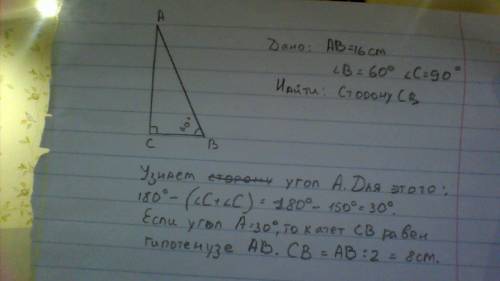 A
Дано: AB=16cm
∠B=60° ∠C=90°
Найти: Сторону CB
60°
C
B
Узнаем сторону угол A. Для этого:
180°-(∠C+∠C)=180°-150°=30°.
Если угол A=30°, то катет CB равен
гипотенузе AB. CB=AB:2=8cm.